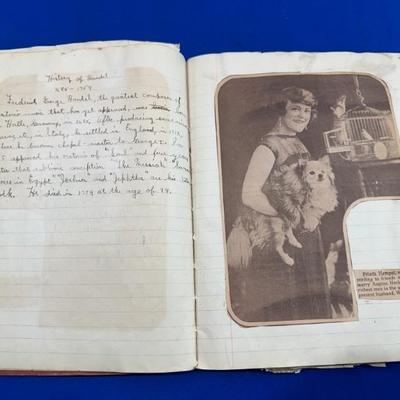 History of Handel
1685 - 1759
Frederick George Handel, the greatest composer of
music that has yet appeared, was
in Halle, Germany, in 1685, After producing some
in Italy, he settled in England, in
he became chapel-master to George I. In
appeared his oratorio of "Saul" and four
later that sublime conception "The Messiah"
in Egypt" "Joshua" and "Jephtha" are his
work. He died in 1759 at the age of 74.
Frieda Hempel,
cording to friends
marry August
richest men in the
present husband, W